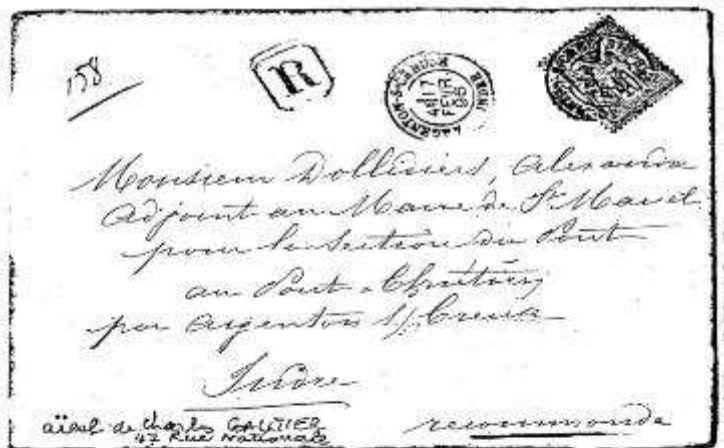 158
R
ARGENTON-S-CREUSE INDRE
17
FEVR
Monsieur Dolliviers, Alexandre
Adjoint au Maire de St Marcel
pour la Section du Pont
au Pont-Chrétien
par Argenton s/ Creuse
Indre
aïeul de Charles GAUTIER
47 Rue Nationale
recommandé